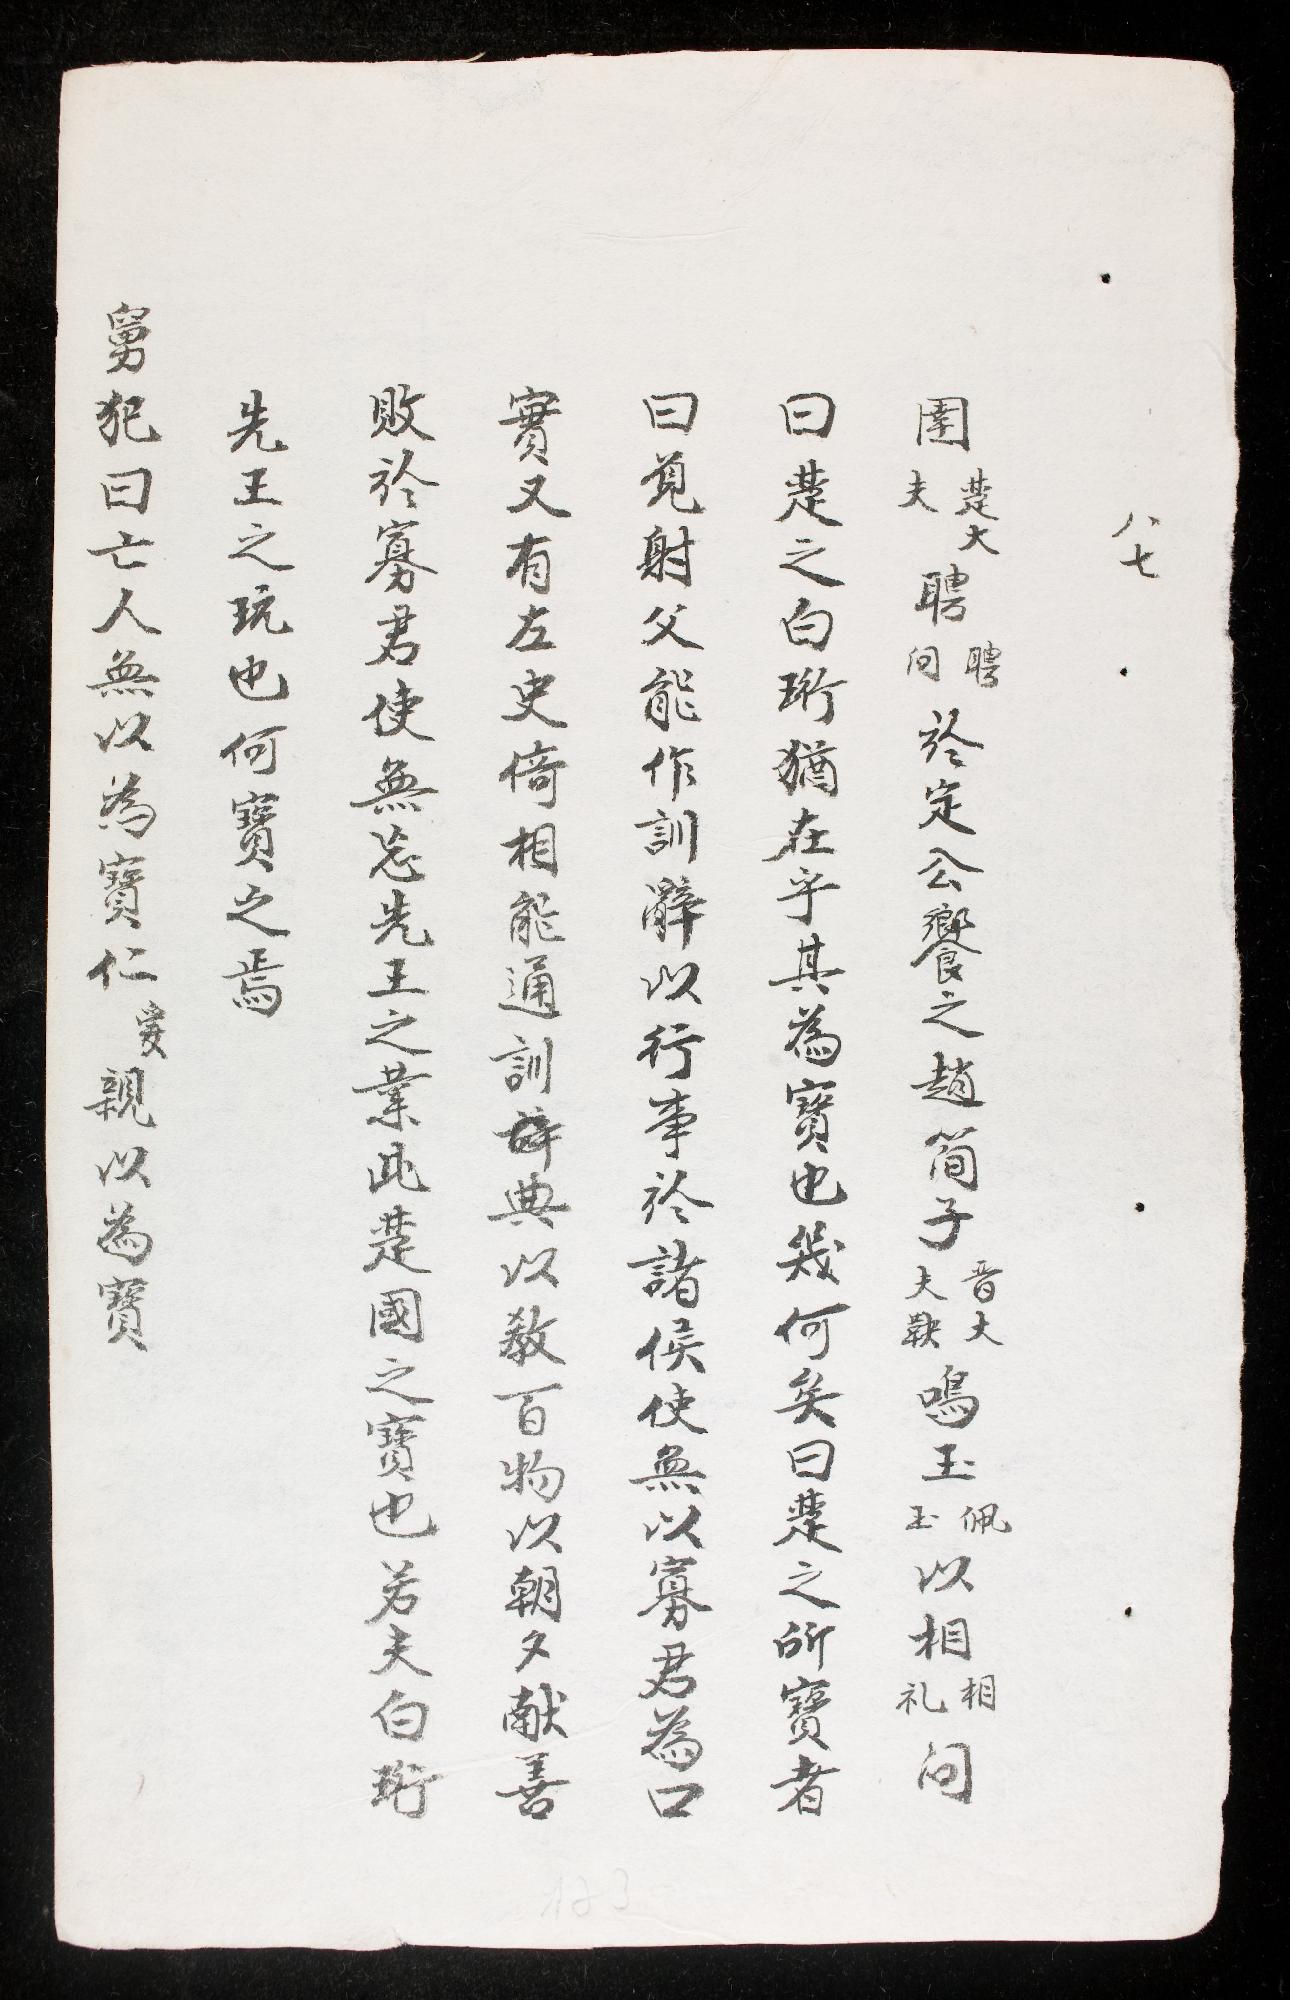 八七
圉楚大夫聘聘問於定公饗之趙簡子晋大夫鞅鳴玉佩玉以相相礼問
曰楚之白珩猶在乎其為寶也幾何矣曰楚之所寶者
曰覌射父能作訓辭以行事於諸侯使無以寡君為口
實又有左史倚相能通訓典以教百物以朝夕献善
敗於寡君使無忘先王之業此楚國之寶也若夫白珩
先王之玩也何寶之焉
舅犯曰亡人無以為寶仁愛親以為寶